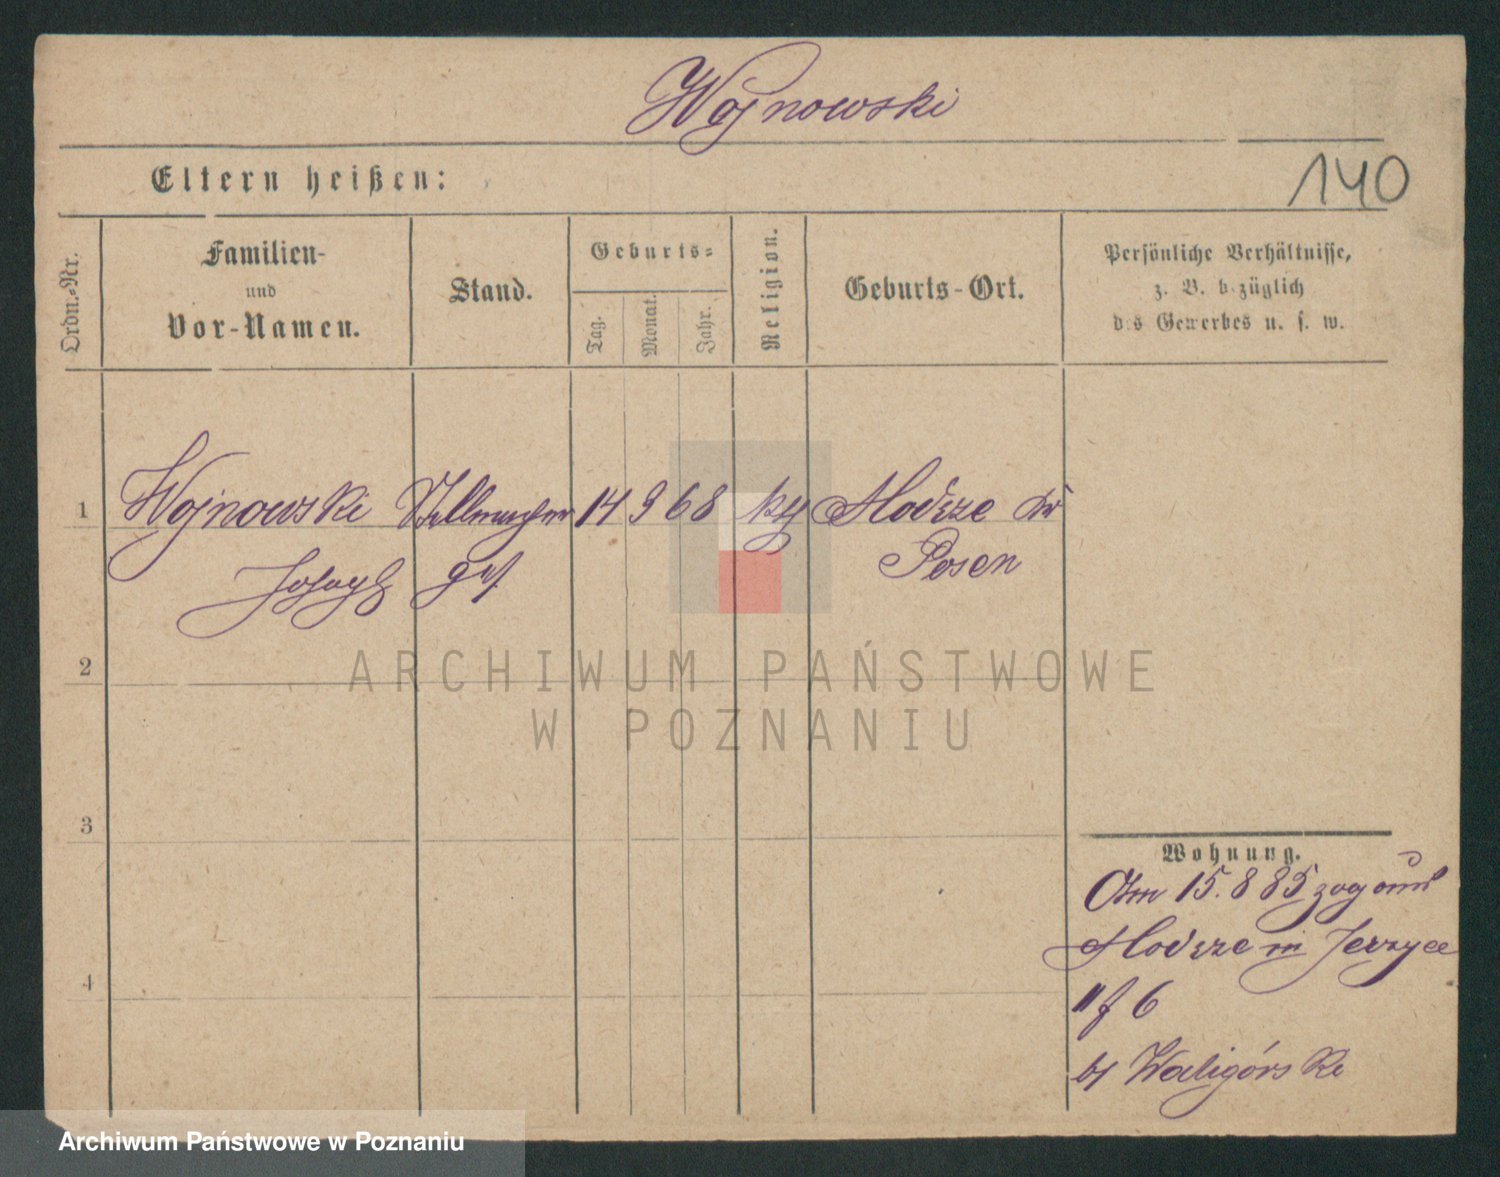 Wojnowski
140
Eltern heißen:
Ordn.-Nr.
Familien-
und
Vor-Namen.
Stand.
Geburts-
Tag.
Monat.
Jahr.
Religion.
Geburts-Ort.
Persönliche Verhältnisse,
z. B. bezüglich
des Gewerbes u. s. w.
1 Wojnowski Stellmacher 14 9 68 Posen
Joseph
2
ARCHIWUM PAŃSTWOWE
W POZNANIU
3
4
Wohnung.
Am 15. 8 85 zog
in Jerzyce
6
Waligórski
Archiwum Państwowe w Poznaniu